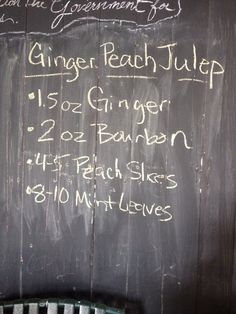 the Government for
Ginger Peach Julep
•1.5 oz Ginger
•2 oz Bourbon
•4-5 Peach Slices
•8-10 Mint Leaves